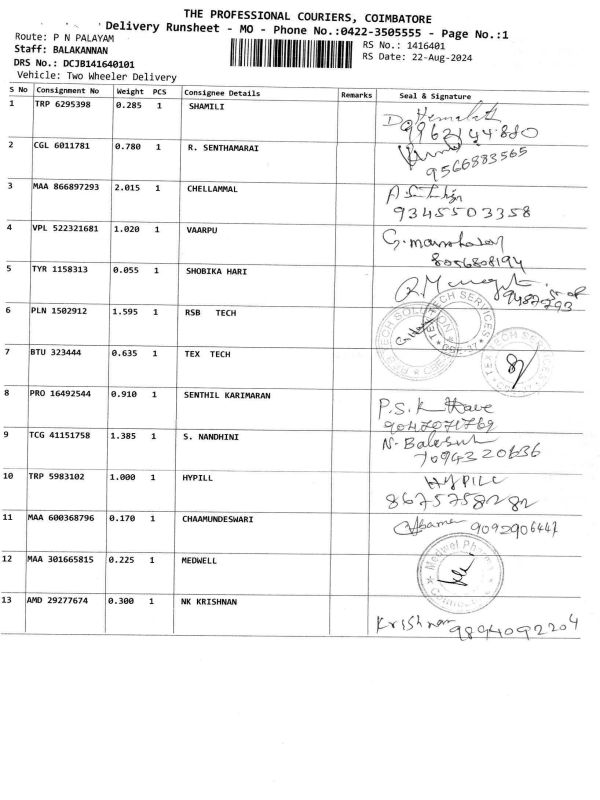 THE PROFESSIONAL COURIERS, COIMBATORE
Delivery Runsheet - MO - Phone No.:0422-3505555 - Page No.:1
Route: P N PALAYAM
RS No.: 1416401
Staff: BALAKANNAN
RS Date: 22-Aug-2024
DRS No.: DCJB141640101
Vehicle: Two Wheeler Delivery
S No Consignment No Weight PCS Consignee Details Remarks Seal & Signature
1 TRP 6295398 0.285 1 SHAMILI
2 CGL 6011781 0.780 1 R. SENTHAMARAI
9566883565
3 MAA 866897293 2.015 1 CHELLAMMAL
9345503358
4 VPL 522321681 1.020 1 VAARPU
8056808194
5 TYR 1158313 0.055 1 SHOBIKA HARI
6 PLN 1502912 1.595 1 RSB TECH
TEX TECH SERVICES
7 BTU 323444 0.635 1 TEX TECH
8 PRO 16492544 0.910 1 SENTHIL KARIMARAN
P.S.K
9047071769
9 TCG 41151758 1.385 1 S. NANDHINI
7094320636
10 TRP 5983102 1.000 1 HYPILL
HYPILL
8675758282
11 MAA 600368796 0.170 1 CHAAMUNDESWARI
9092906447
12 MAA 301665815 0.225 1 MEDWELL
Medwel Pharma
13 AMD 29277674 0.300 1 NK KRISHNAN
Krishnan 9894092204